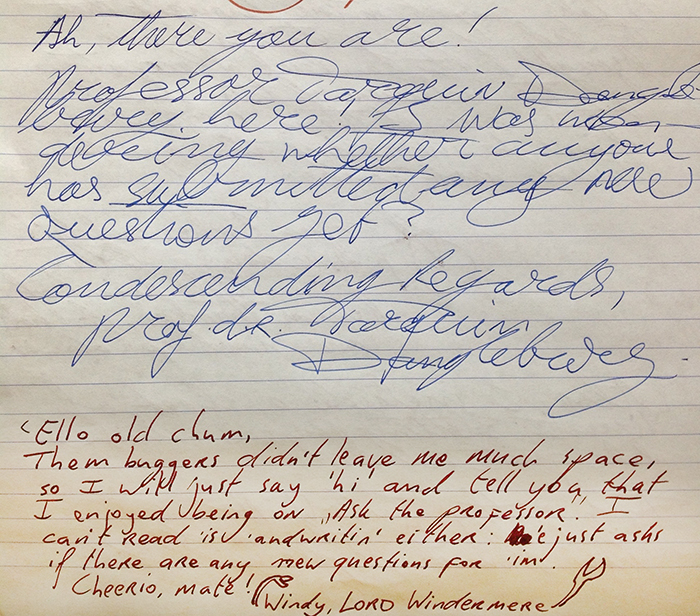 Ah, there you are!
Professor Tarquin Dangle
bury here, I was won
dering whether anyone
has submitted any new
questions yet?
Condescending Regards,
Prof. dr. Tarquin
Danglebury.
'Ello old chum,
Them buggers didn't leave me much space,
so I will just say 'hi' and tell you, that
I enjoyed being on „Ask the professor". I
can't read 'is 'andwritin' either: 'e just asks
if there are any new questions for 'im.
Cheerio, mate!
Windy, LORD Windermere